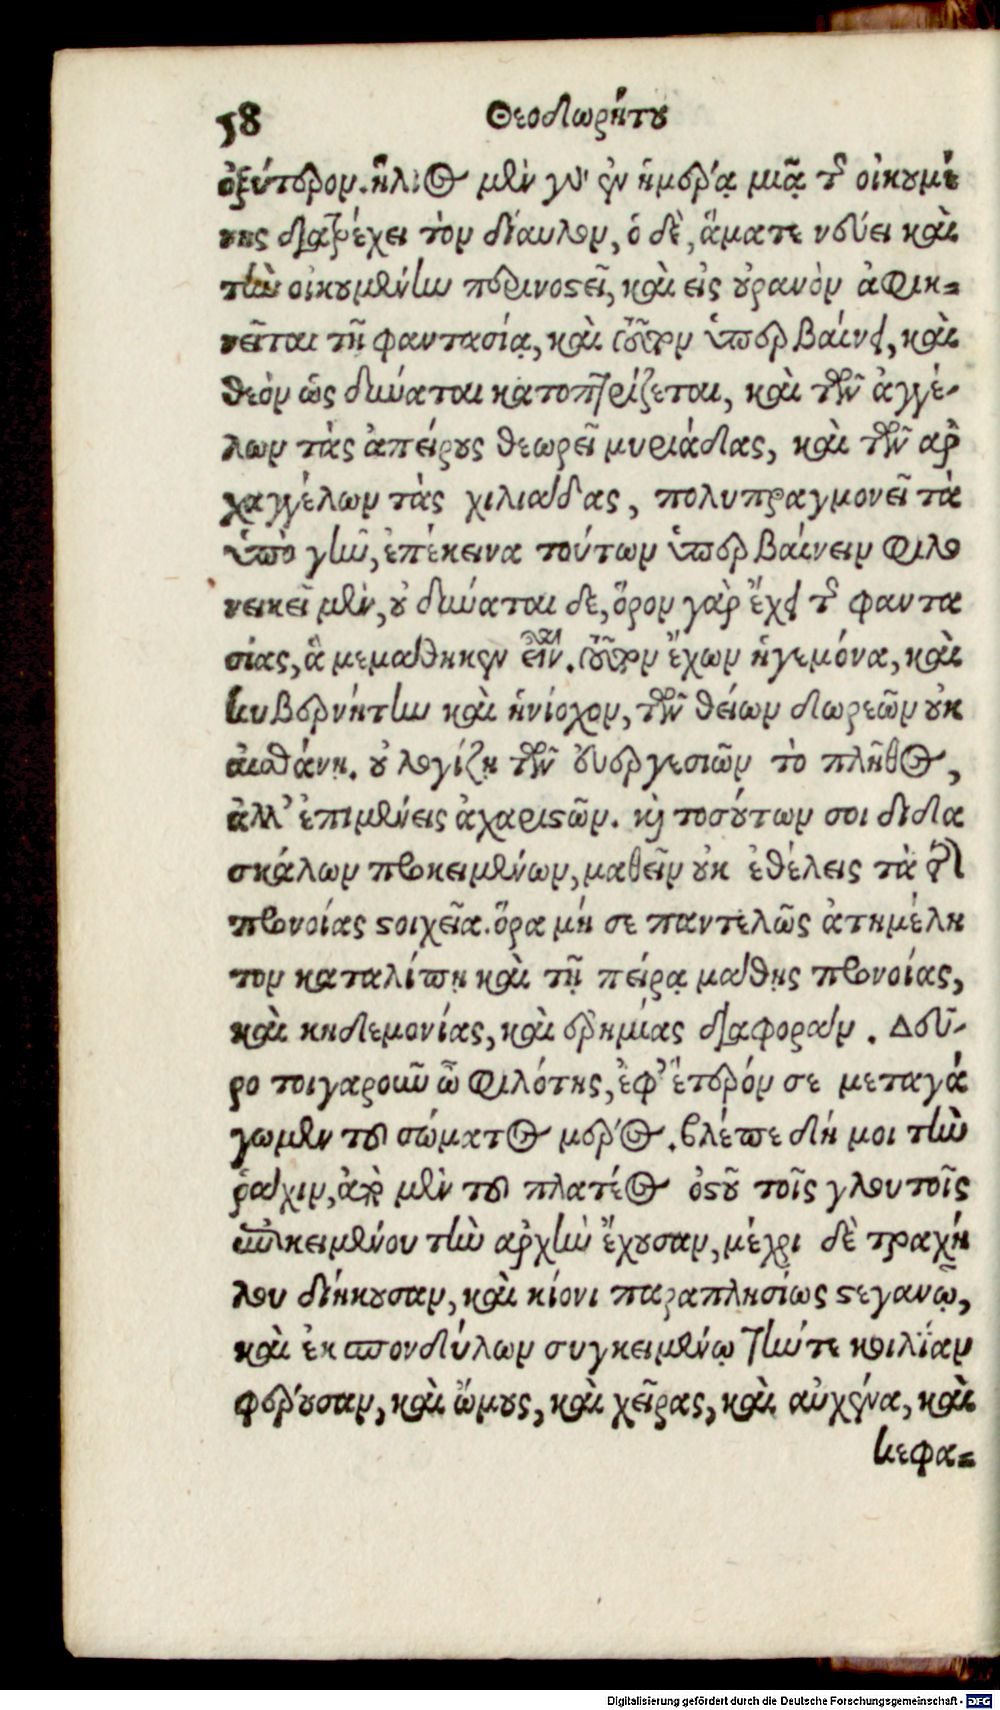 58 Θεοδωρήτου
ὀξύτερον. ἥλιος μὲν γὰρ ἐν ἡμέρᾳ μιᾷ τῆς οἰκουμέ
νης διατρέχει τὸν δίαυλον, ὁ δὲ, ἅματε νεύει καὶ
τὴν οἰκουμένην περινοστεῖ, καὶ εἰς οὐρανὸν ἀφικ=
νεῖται τῇ φαντασίᾳ, καὶ τοῦτον ὑπερβαίνει, καὶ
θεὸν ὡς δύναται κατοπτρίζεται, καὶ τῶν ἀγγέ-
λων τὰς ἀπείρους θεωρεῖ μυριάδας, καὶ τῶν αρ
χαγγέλων τὰς χιλιάδας, πολυπραγμονεῖ τὰ
ὑπὸ γῆν, ἐπέκεινα τούτων ὑπερβαίνειν φιλο
νεικεῖ μὲν, οὐ δύναται δε, ὅρον γὰρ ἔχει τῆς φαντα
σίας, ἃ μεμάθηκεν εἶναι. τοῦτον ἔχων ἡγεμόνα, καὶ
κυβερνήτην καὶ ἡνίοχον, τῶν θείων δωρεῶν οὐκ
αἰσθάνῃ. οὐ λογίζῃ τῶν εὐεργεσιῶν τὸ πλῆθος,
ἀλλ' ἐπιμένεις ἀχαριστῶν. καὶ τοσούτων σοι διδα
σκάλων προκειμένων, μαθεῖν οὐκ ἐθέλεις τὰ τῆς
προνοίας στοιχεῖα. ὅρα μή σε παντελῶς ἀτημέλη
τον καταλίπῃ καὶ τῇ πείρᾳ μάθῃς προνοίας,
καὶ κηδεμονίας, καὶ ἐρημίας διαφοράν. Δεῦ-
ρο τοιγαροῦν ὦ φιλότης, ἐφ' ἕτερόν σε μεταγά
γωμεν τοῦ σώματος μέρος. βλέπε δή μοι τὴν
ῥάχιν, ἀπὸ μὲν τοῦ πλατέος ὀστοῦ τοῖς γλουτοῖς
ἐπικειμένου τὴν ἀρχὴν ἔχουσαν, μέχρι δὲ τραχή
λου διήκουσαν, καὶ κίονι παραπλησίως στεγανῷ,
καὶ ἐκ σπονδύλων συγκειμένῳ τήν τε κοιλίαν
φέρουσαν, καὶ ὤμους, καὶ χεῖρας, καὶ αὐχένα, καὶ
κεφα=
Digitalisierung gefördert durch die Deutsche Forschungsgemeinschaft - DFG